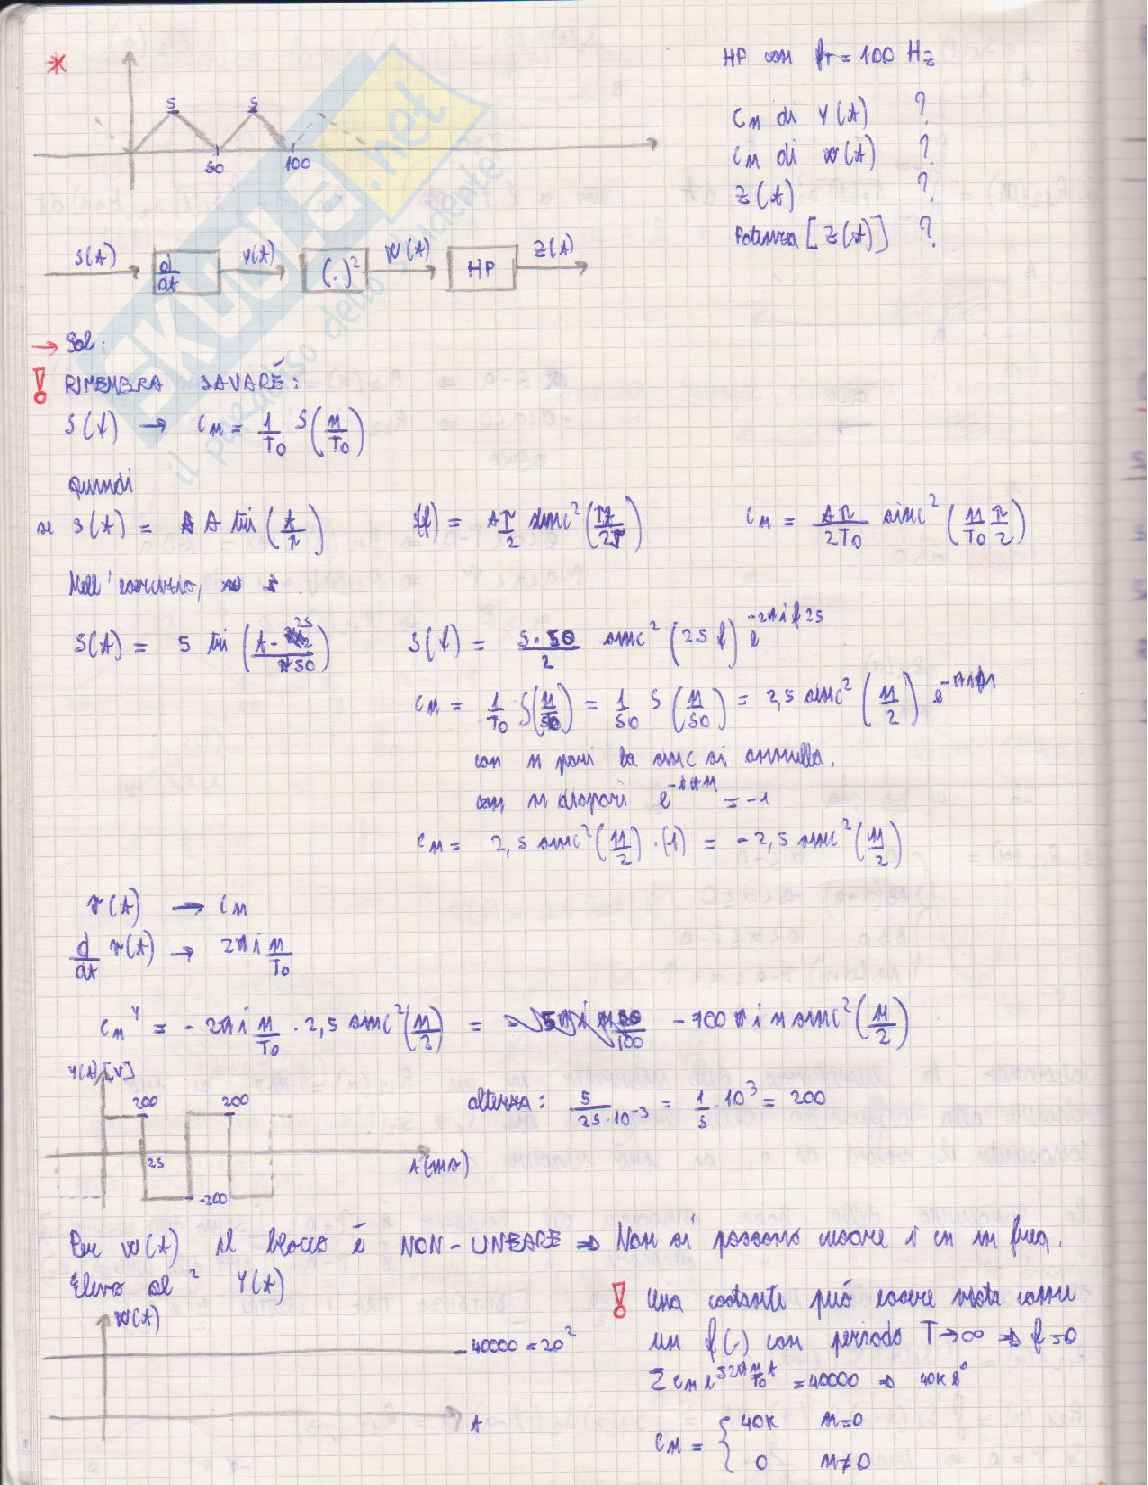 *
5 5
50 100
HP con fT = 100 Hz
Cn di Y(t) ?
Cn di w(t) ?
Z(t) ?
Potenza [Z(t)] ?
S(t) d/dt Y(t) (.)² W(t) HP Z(t)
SKUOLA.net
→ Sol:
! RIMEMBRA SAVARÉ:
S(f) → Cn = 1/T0 S(n/T0)
Quindi
se s(t) = A tri(t/τ) S(f) = Aτ/2 sinc²(τf/2) Cn = Aτ/2T0 sinc²(n/T0 τ/2)
Nell'esercizio,
S(t) = 5 tri((t-25)/50) S(f) = 5·50/2 sinc²(25f) e^-2πif25
Cn = 1/T0 S(n/50) = 1/50 S(n/50) = 2,5 sinc²(n/2) e^-iπn
con n pari la sinc si annulla.
con n dispari e^-iπn = -1
Cn = 2,5 sinc²(n/2)·(-1) = -2,5 sinc²(n/2)
v(t) → Cn
d/dt v(t) → 2πi n/T0
Cn^Y = -2πi n/T0 · 2,5 sinc²(n/2) = -100πi n sinc²(n/2)
Y(t)[V]
200 200
altezza: 5/25·10^-3 = 1/5·10^3 = 200
25
t(ms)
-200
Per w(t) il blocco è NON-LINEARE ⇒ Non si possono usare i cn in freq.
Elevo al ² Y(t)
W(t)
40000 = 20²
t
! Una costante può essere vista come
un f(·) con periodo T→∞ ⇒ f=0
Σ cn e^j2πn/T0 t = 40000 ⇒ 40k e^0
Cn = { 40k n=0
0 n≠0